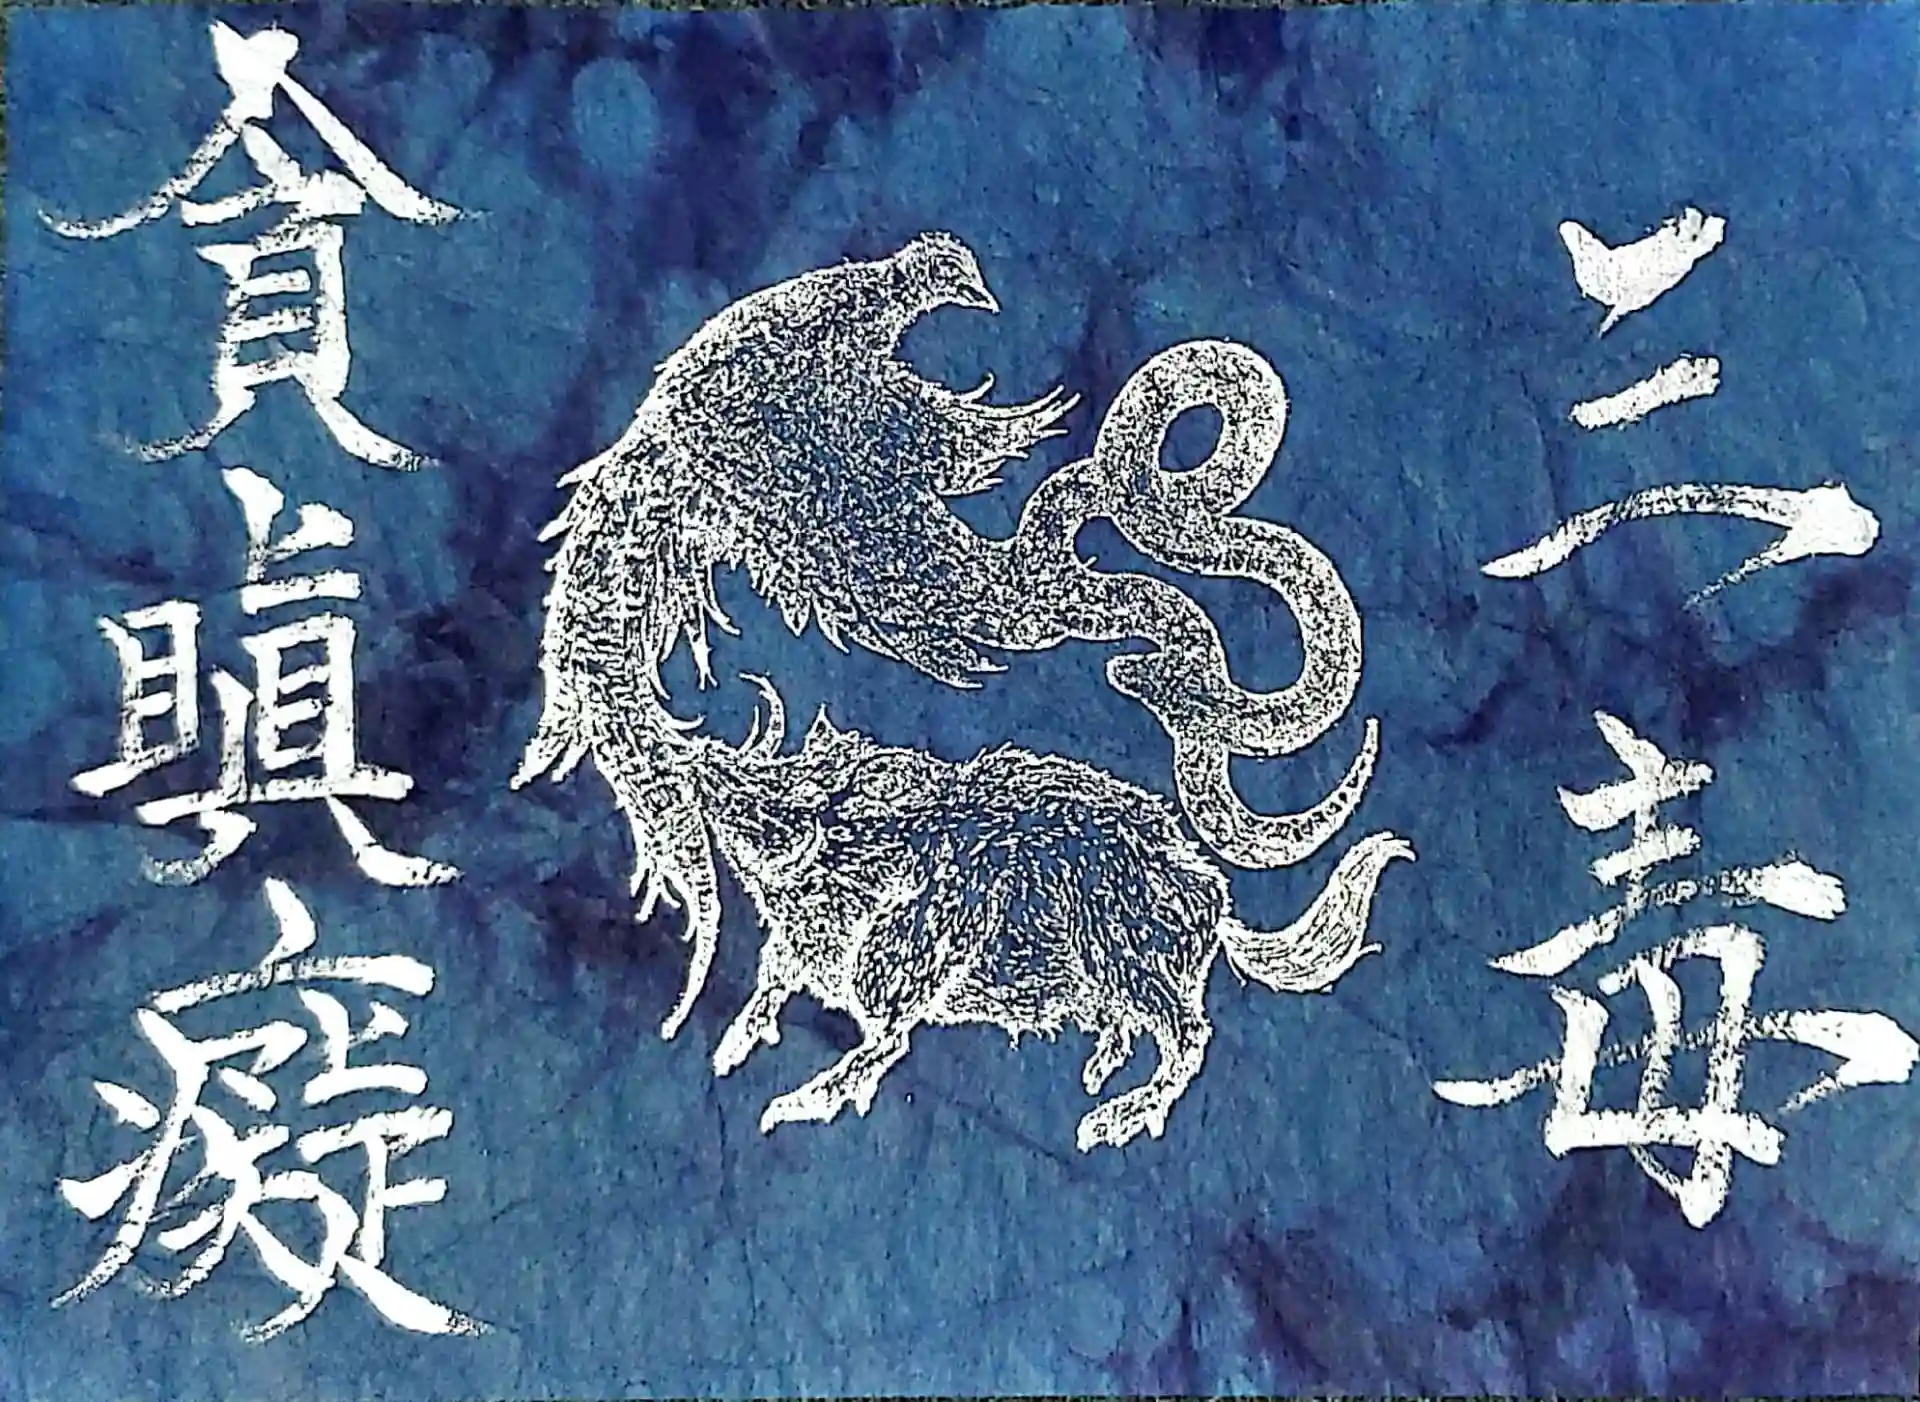 三毒
貪瞋癡